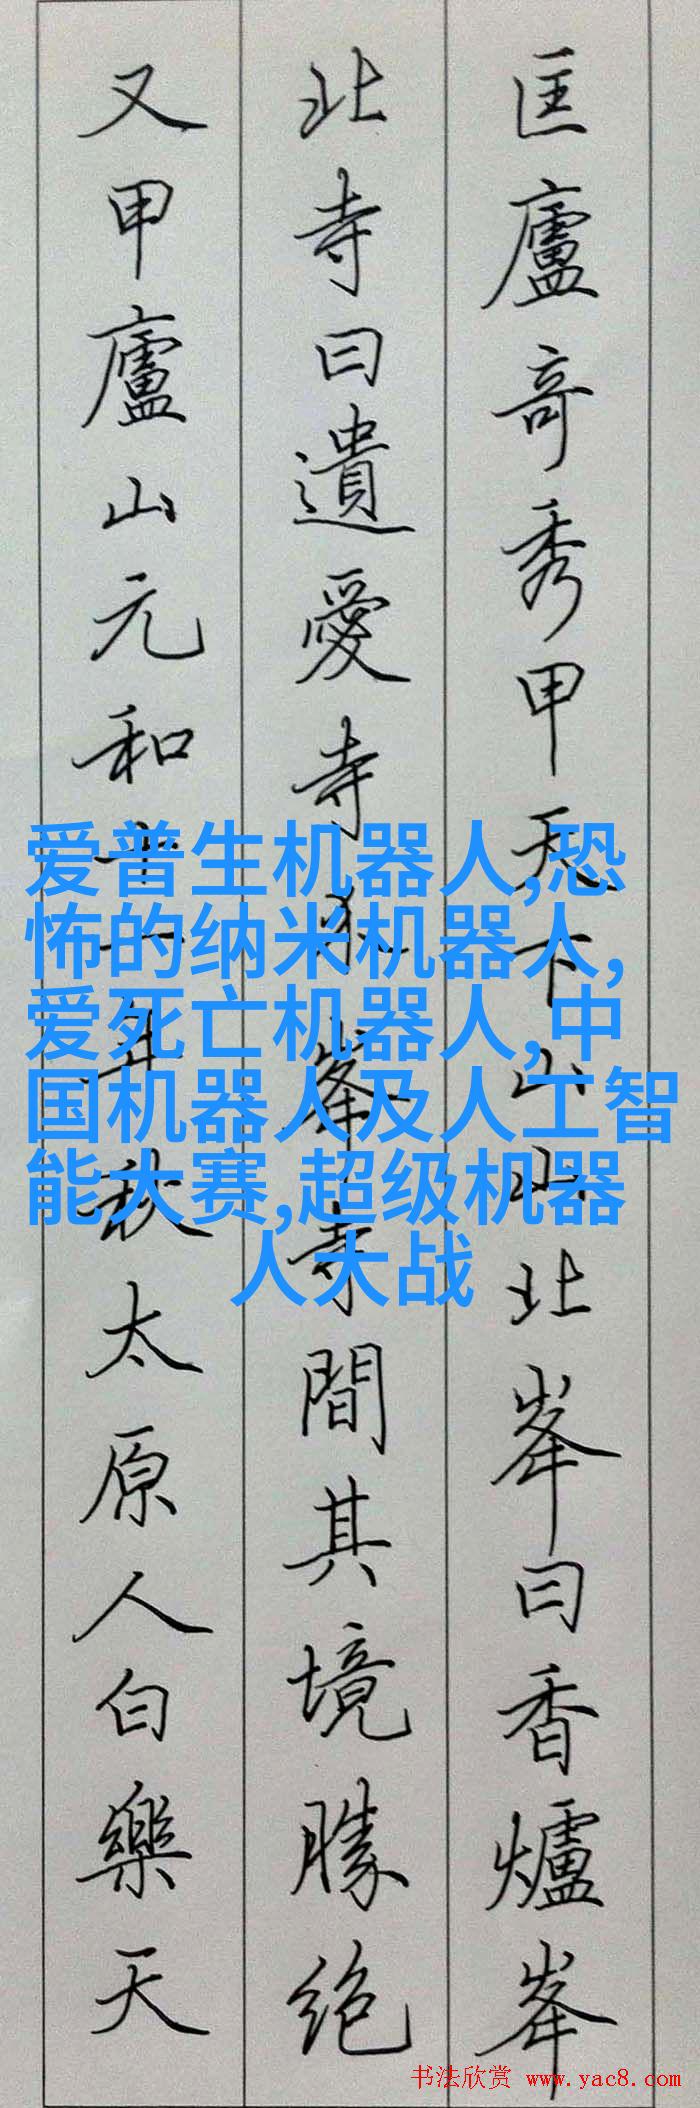 匡廬奇秀甲天下山山北峯曰香爐峯
北寺曰遺愛寺介峯寺間其境勝绝
又甲廬山元和十一年秋太原人白樂天
爱普生机器人,恐
怖的纳米机器人,
爱死亡机器人,中
国机器人及人工智
能大赛,超级机器
人大战
书法欣赏 www.yac8.com